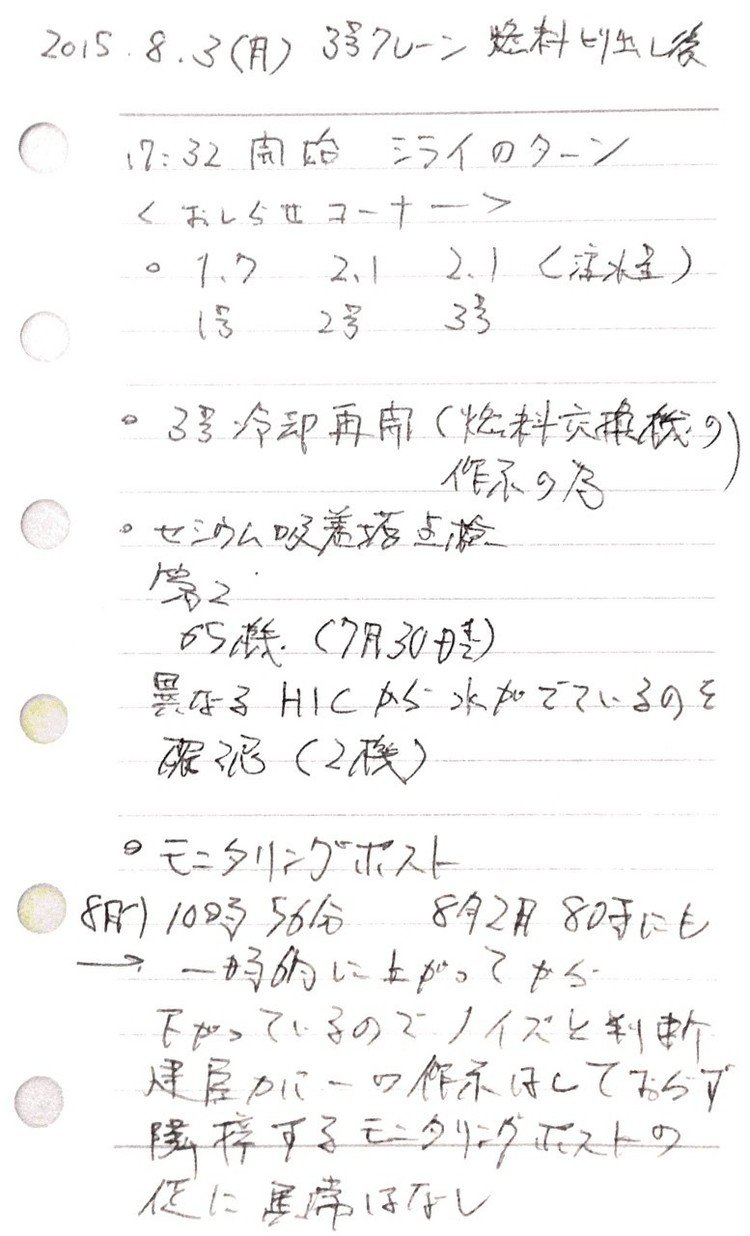 2015.8.3(月) 3号クレーン 燃料とり出し後
17:32 開始 ミライのターン
<おしらせコーナー>
○ 1.7 2.1 2.1 (注水量)
1号 2号 3号
○ 3号冷却再開(燃料交換機の
作業の為)
○ セシウム吸着塔点検
第2
65機.(7月30日)
異なるHICから水がでているのを
確認(2機)
○ モニタリングポスト
10時56分 8月2日 8時にも
→ 一時的に上がってから
下がっているのでノイズと判断
建屋カバーの作業はしておらず
隣接するモニタリングポストの
値に異常はなし